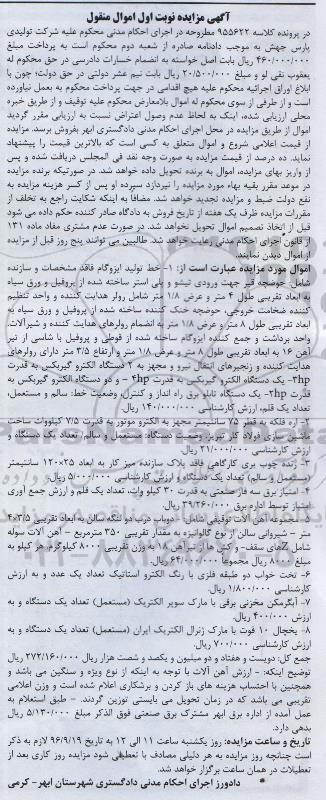 آگهی مزایده نوبت اول اموال منقول
در پرونده کلاسه ۹۵۵۶۲۲ مطروحه در اجرای احکام مدنی محکوم علیه شرکت تولیدی
پارس جهش به موجب دادنامه صادره از شعبه دوم محکوم است به پرداخت مبلغ
۴۶۰/۰۰۰/۰۰۰ ریال بابت اصل خواسته به انضمام خسارات دادرسی در حق محکوم له
یعقوب نقی لو و مبلغ ۲۰/۵۰۰/۰۰۰ ریال بابت نیم عشر دولتی در حق دولت؛ چون با
ابلاغ اوراق اجرائیه محکوم علیه هیچ اقدامی در جهت پرداخت محکوم به بعمل نیاورده
است و از طرفی از سوی محکوم له اموال بلامعارض محکوم علیه توقیف و از طریق خبره
محلی ارزیابی شده، اینک به لحاظ عدم وصول اعتراض نسبت به ارزیابی مقرر گردید
اموال از طریق مزایده در محل اجرای احکام مدنی دادگستری ابهر بفروش برسد. مزایده
از قیمت اعلامی شروع و اموال متعلق به کسی است که بالاترین قیمت را پیشنهاد
نماید. ده درصد از قیمت مزایده به صورت وجه نقد فی المجلس دریافت شده و پس
از واریز بهای مزایده، اموال به برنده تحویل داده خواهد شد. در صورتیکه برنده مزایده
در موعد مقرر بقیه بهاء مورد مزایده را نپردازد سپرده او پس از کسر هزینه مزایده به
نفع دولت ضبط و مزایده تجدید خواهد شد. مضافا به اینکه شکایت راجع به تخلف از
مقررات مزایده ظرف یک هفته از تاریخ فروش به دادگاه صادر کننده حکم داده می شود
قبل از اتخاذ تصمیم اموال تحویل نخواهد شد. در صورت عدم مشتری مفاد ماده ۱۳۱
از قانون اجرای احکام مدنی رعایت خواهد شد. طالبین می توانند پنج روز قبل از مزایده
از اموال دیدن نمایند.
اموال مورد مزایده عبارت است از: ۱- خط تولید ایزوگام فاقد مشخصات و سازنده
شامل: حوضچه قیر جهت ورودی تیشو و پلی استر ساخته شده از پروفیل و ورق سیاه
به ابعاد تقریبی طول ۴ متر و عرض ۱/۸ متر شامل رولر هدایت کننده و واحد تنظیم
کننده ضخامت خروجی، حوضچه خنک کننده ساخته شده از پروفیل و ورق سیاه به
ابعاد تقریبی طول ۸ متر و عرض ۱/۸ متر به انضمام رولرهای هدایت کننده و شیرآلات.
واحد برداشت و جمع کننده ایزوگام ساخته شده از قوطی و پروفیل با شاسی از تیر
آهن ۱۶ به ابعاد تقریبی طول ۸ متر و عرض ۱/۸ متر و ارتفاع ۳/۵ متر دارای رولرهای
هدایت کننده و زنجیرهای انتقال نیرو و مجهز به ۲ دستگاه الکترو گیربکس به قدرت
- یک دستگاه الکترو گیربکس به قدرت ۴hp - و دو دستگاه الکترو گیربکس به
قدرت - یک دستگاه تابلو برق راه انداز و کنترل، وضعیت خط: سالم و مستعمل،
تعداد یک قلم، ارزش کارشناسی ۱۴۰/۰۰۰/۰۰۰ ریال.
۲- اره فلکه به قطر ۷۵ سانتیمتر مجهز به الکترو موتور به قدرت ۷/۵ کیلووات ساخت
ماشین سازی فولاد کار تبریز. وضعیت دستگاه: مستعمل و سالم، تعداد یک دستگاه و
ارزش کارشناسی ۲۱/۰۰۰/۰۰۰ ریال.
۳- رنده چوب بری کارگاهی فاقد پلاک سازنده میز کار به ابعاد ۲۵×۱۲۰ سانتیمتر
(مستعمل و سالم) تعداد یک دستگاه و ارزش کارشناسی ۵/۰۰۰/۰۰۰ ریال.
۴- امتیاز برق سه فاز صنعتی به قدرت ۳۰ کیلو وات، تعداد یک قلم و ارزش جمع آوری
امتیاز توسط اداره برق ۳۹/۲۶۰/۰۰۰ ریال.
۵- مجموعه آهن آلات توقیفی شامل: - دوباب درب دو لنگه سالن به ابعاد تقریبی ۳/۵×۴
متر - شیروانی سالن از نوع گالوانیزه به مقدار تقریبی ۳۵۰ مترمربع - آهن آلات سوله
شامل Zهای سقف- و کش ها از تیرآهن ۱۸ به وزن تقریبی ۸۰۰۰ کیلوگرم. هر کیلو به
مبلغ ۸۰۰۰ ریال مجموعا ۶۴/۰۰۰/۰۰۰ ریال.
۶- تخت خواب دو طبقه فلزی با رنگ الکترو استاتیک تعداد یک عدد و به ارزش
کارشناسی ۱/۸۰۰/۰۰۰ ریال.
۷- آبگرمکن مخزنی برقی با مارک سوپر الکتریک (مستعمل) تعداد یک دستگاه و به
ارزش ۴۰۰/۰۰۰ ریال.
۸- یخچال ۱۰ فوت با مارک ژنرال الکتریک ایران (مستعمل) تعداد یک دستگاه و به
ارزش کارشناسی ۷۰۰/۰۰۰ ریال.
جمع کل: دویست و هفتاد و دو میلیون و یکصد و شصت هزار ریال ۲۷۲/۱۶۰/۰۰۰ ریال
توضیح اینکه: - ارزش آهن آلات با توجه به اینکه از نوع ویژه و سنگین می باشد و
همچنین با احتساب هزینه های باز کردن و برشکاری اعلام شده است و وزن اعلامی
تقریبی می باشد که در زمان تحویل می بایستی توزین گردند. - طبق استعلام به
عمل آمده از اداره برق ابهر مشترک برق صنعتی فوق الذکر مبلغ ۵/۱۳۰/۰۰۰ ریال
بدهی دارد.
تاریخ و ساعت مزایده: روز یکشنبه ساعت ۱۱ الی ۱۲ به تاریخ ۹۶/۹/۱۹ لازم به ذکر
است چنانچه روز مزایده به هر دلیلی مصادف با تعطیلی شود مزایده روز کاری بعد از
تعطیلات در همان ساعت برگزار خواهد شد.
* دادورز اجرای احکام مدنی دادگستری شهرستان ابهر- کرمی